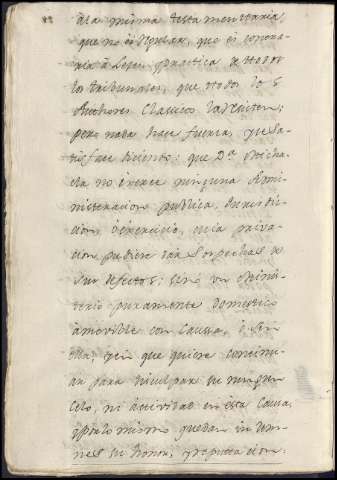 à la misma testamentaria,
que no es regular, que es contra-
ria à Leyes y practica de ttodos
los tribunales, que ttodos los
Authores Clasicos la resisten;
pero nada hace fuerza, y se sa-
tisface diciendo: que D.ª Micha-
ela no exerce ninguna Admi-
nistracion publica, Jurisdic-
cion, o exercicio, cuia priva-
cion pudiere traer sospechas de
sus defectos; sino un Minis-
terio puramente domestico
amovible con Caussa, ò sin
ella; y en que quiere continu-
ar para disculpar su ningun
Celo, ni actividad en esta Caussa,
y por lo mismo quedan indem-
nes su honor, y reputacion.